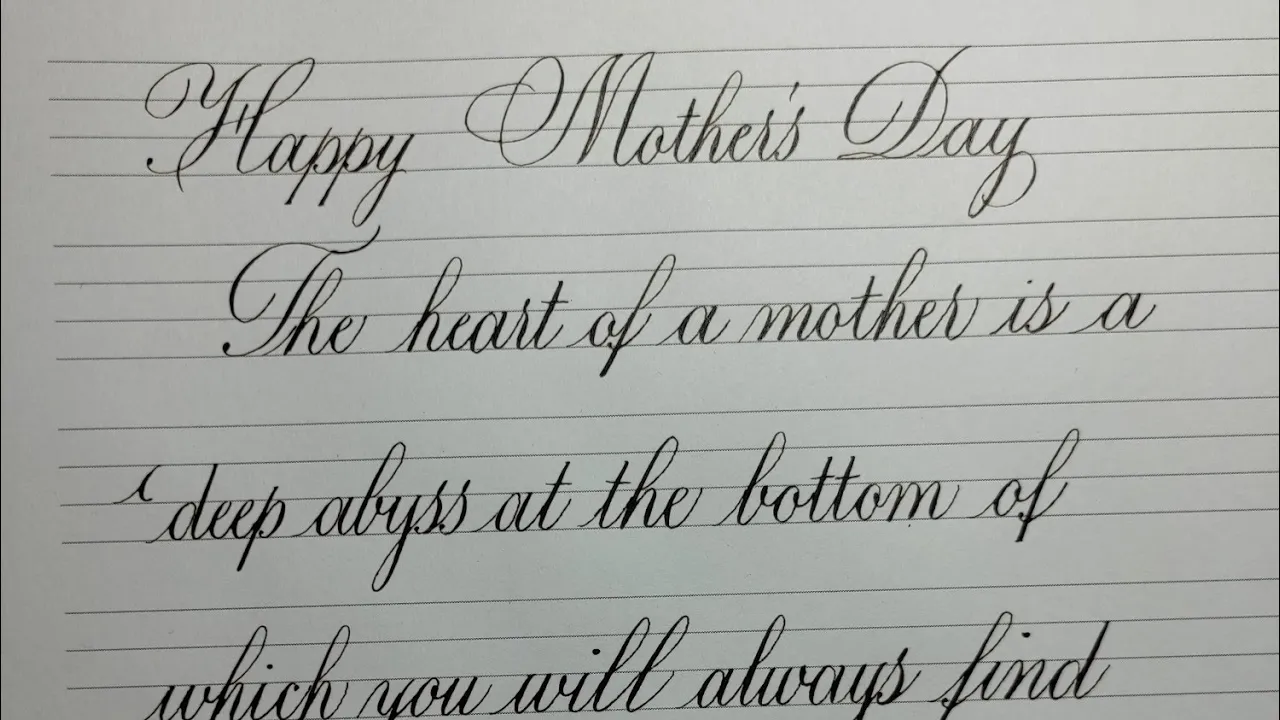 Happy Mother's Day
The heart of a mother is a
deep abyss at the bottom of
which you will always find